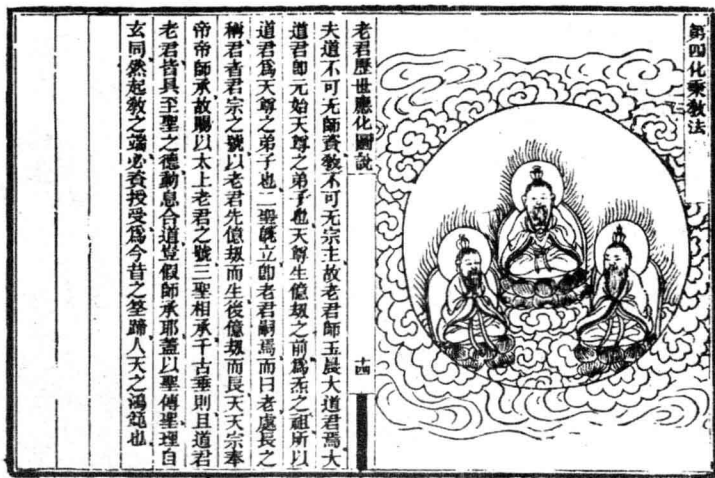 第四化乘教法
老君歷世應化圖說
十四
夫道不可无師資教不可无宗主故老君師玉晨大道君焉大
道君卽元始天尊之弟子也天尊生億刼之前爲炁之祖所以
道君爲天尊之弟子也二聖旣立卽老君嗣焉而曰老處長之
稱君者君宗之號以老君先億刼而生後億刼而長天天宗奉
帝帝師承故賜以太上老君之號三聖相承千古垂則且道君
老君皆具至聖之德動息合道豈假師承耶蓋以聖傳聖理自
玄同然起敎之端必資授受爲今昔之筌蹄人天之鴻範也